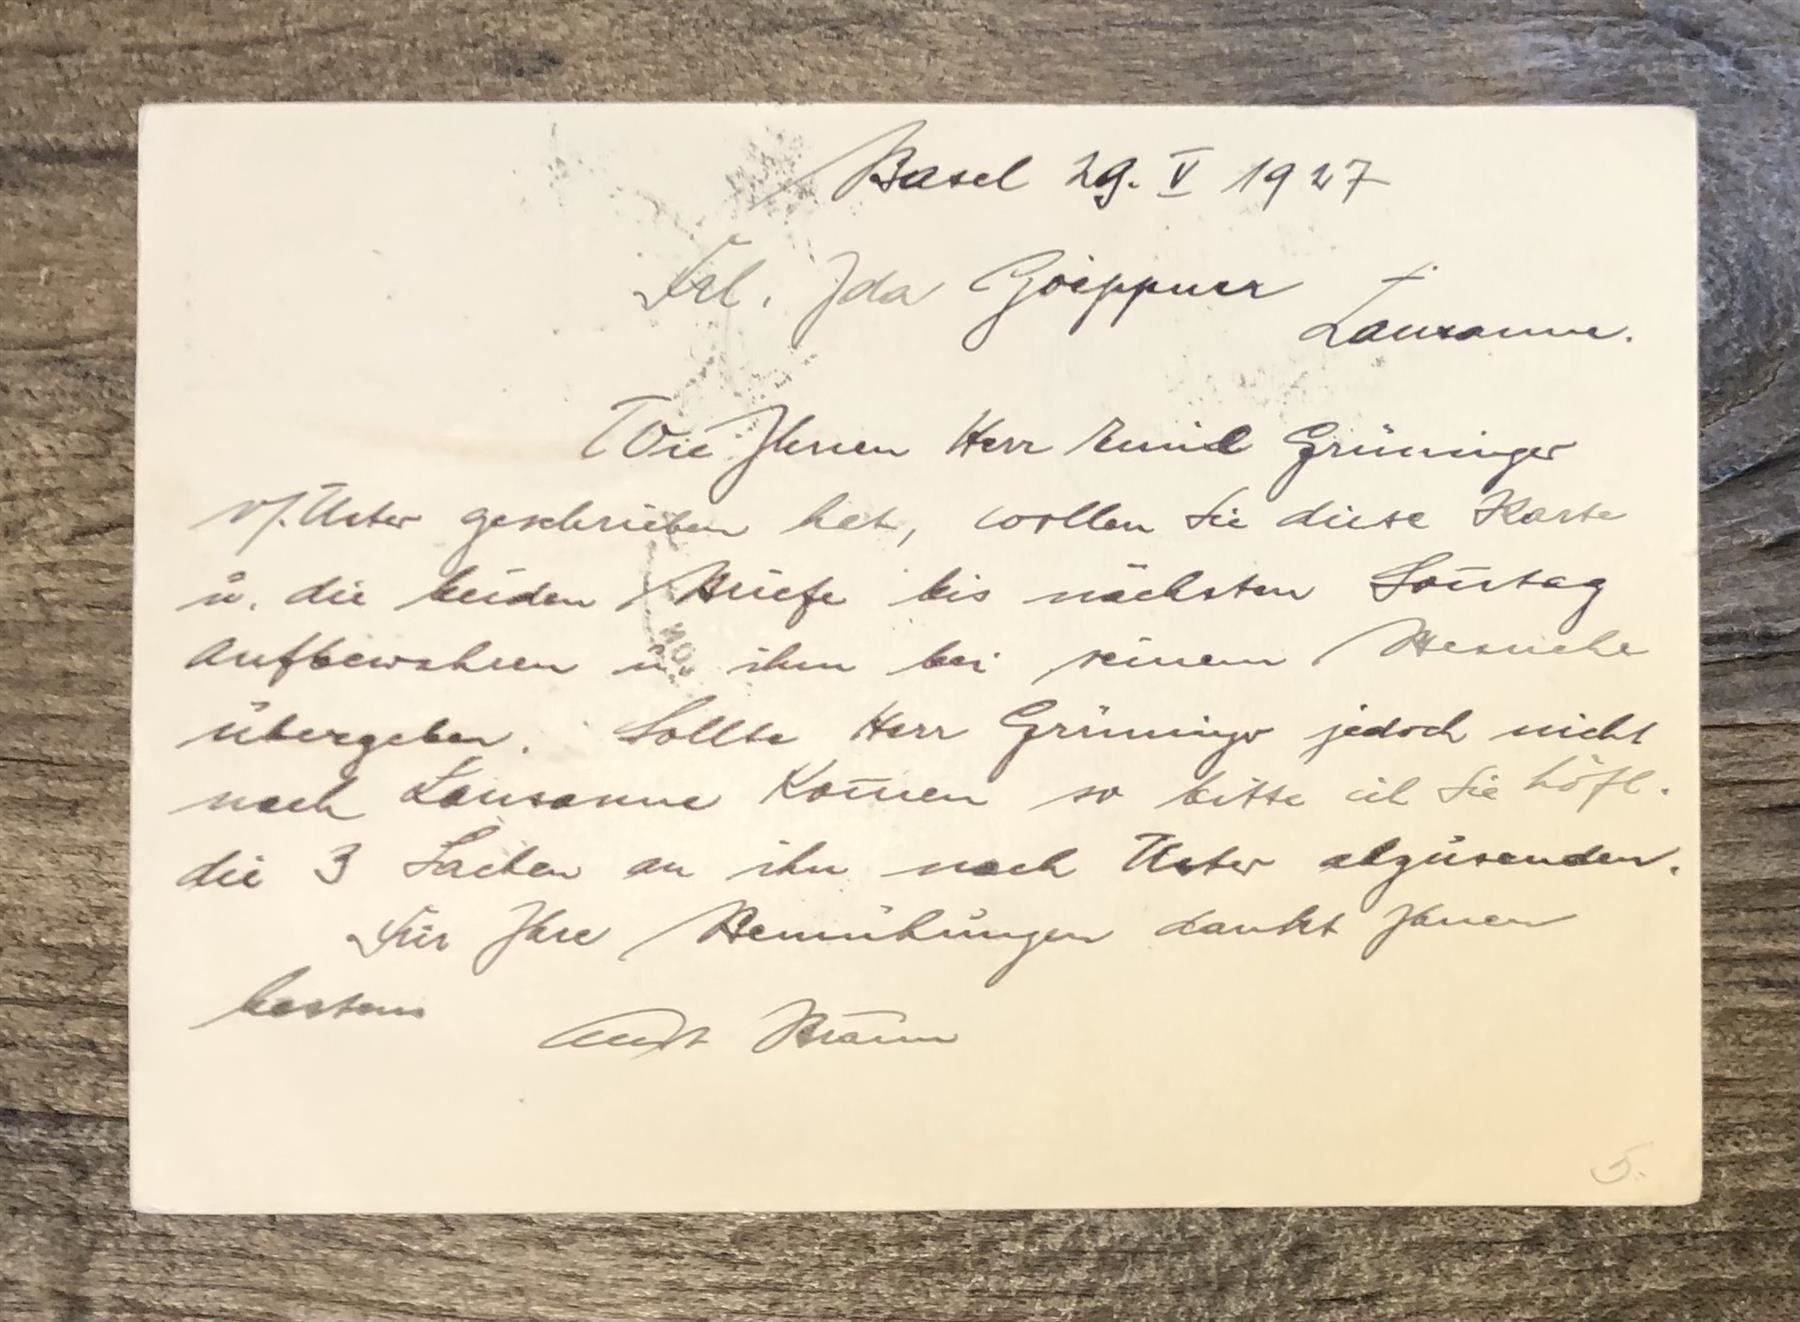 Basel 29. V 1927
Frl. Ida
Lausanne.
Wie Ihnen Herr Emil Grüninger
v/. Uster geschrieben hat, wollen Sie diese Karte
u. die beiden Briefe bis nächsten Soñtag
aufbewahren u. ihm bei seinem Besuche
übergeben. Sollte Herr Grüninger jedoch nicht
nach Lausanne Kom̄en so bitte ich Sie höfl.
die 3 Sachen an ihn nach Uster abzusenden.
Für Ihre Bemühungen dankt Ihnen
bestens
5.